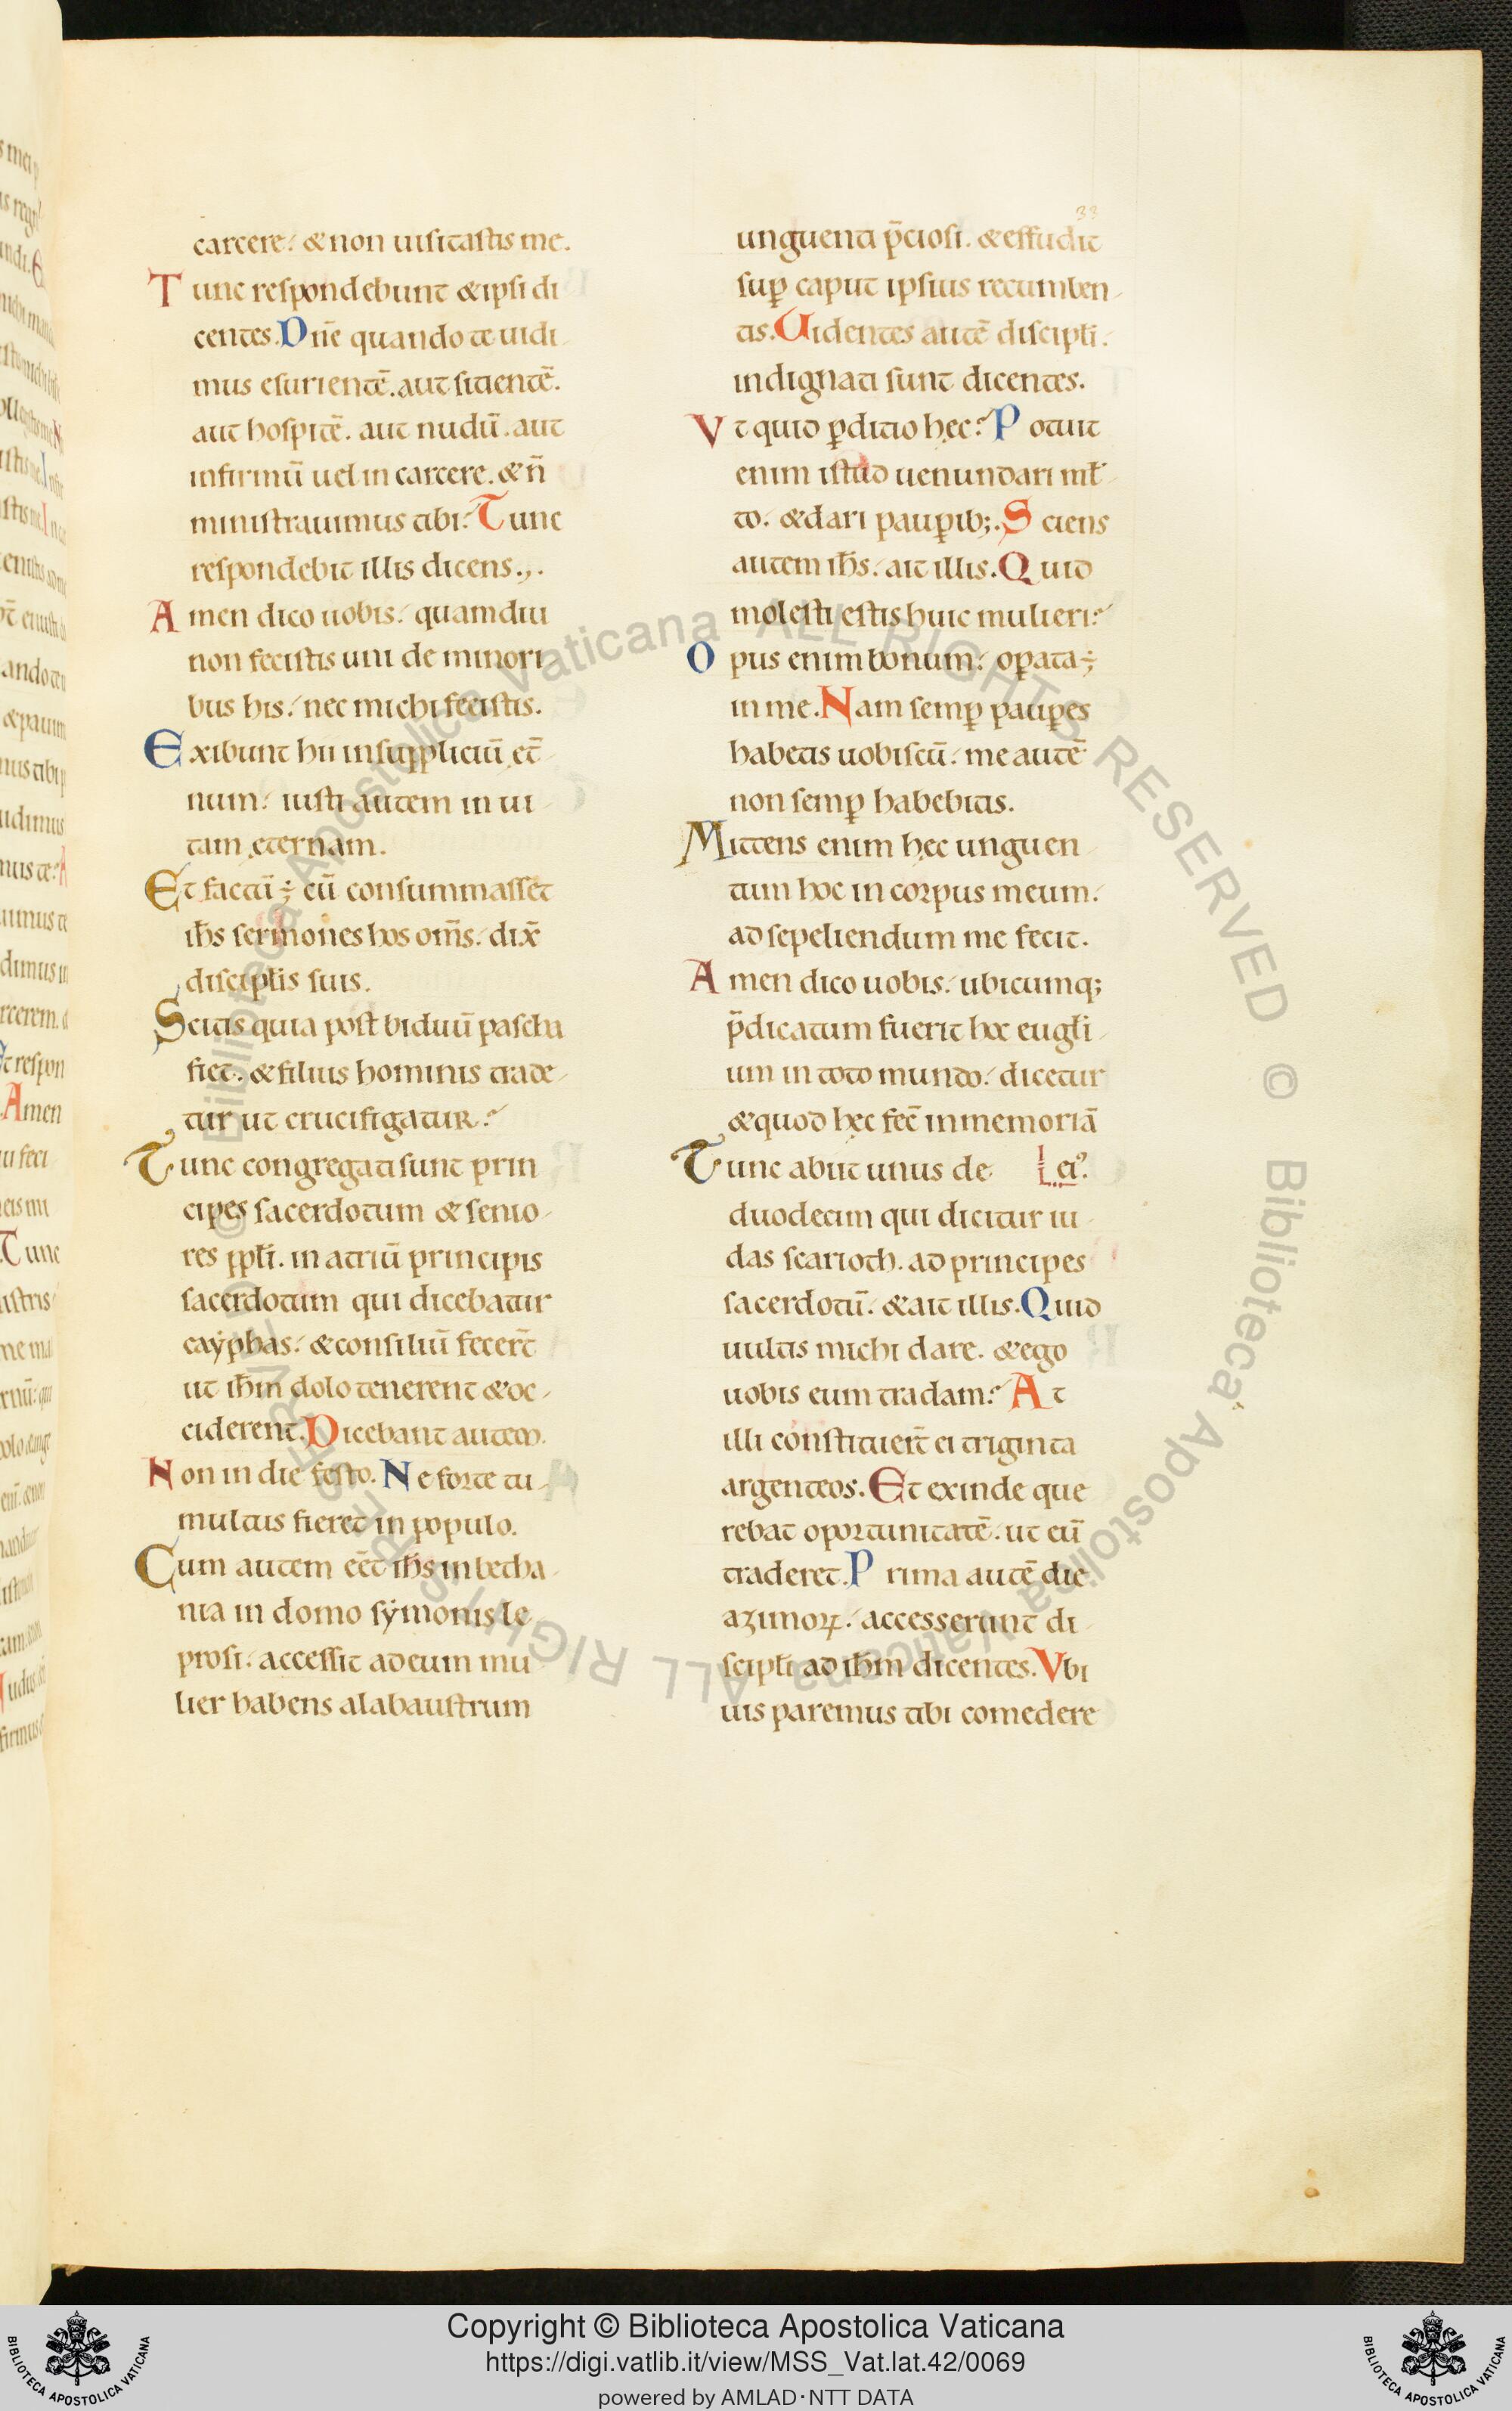 33
carcere. & non uisitastis me.
Tunc respondebunt & ipsi di
centes. Dn̄e quando te uidi
mus esurientē. aut sitientē.
aut hospitē. aut nudū. aut
infirmū uel in carcere. & n̄
ministrauimus tibi? Tunc
respondebit illis dicens.,.
Amen dico uobis. quamdiu
non fecistis uni de minori
bus his. nec michi fecistis.
Exibunt hii in suppliciū et̄
num. iusti autem in ui
tam ęternam.
Et factū ÷ cū consummasset
ih̄s sermones hos om̄s. dix̄
discipl̄is suis.
Scitis quia post biduū pascha
fiet. & filius hominis trade
tur ut crucifigatur?
Tunc congregati sunt prin
cipes sacerdotum & senio
res ppl̄i. in atriū principis
sacerdotum qui dicebatur
cayphas. & consiliū fecer̄t
ut ih̄m dolo tenerent & oc
ciderent. Dicebant autem.
Non in die festo. Ne forte tu
multus fieret in populo.
Cum autem eēt ih̄s in betha
nia in domo symonis le
prosi. accessit ad eum mu
lier habens alabaustrum
unguenti p̄ciosi. & effudit
sup̱ caput ipsius recumben
tis. Uidentes autē discipl̄i.
indignati sunt dicentes.
Vt quid p̱ditio hęc? Potuit
enim istud uenundari ml̄
to. & dari paup̱ib;. Sciens
autem ih̄s. ait illis. Quid
molesti estis huic mulieri?
Opus enim bonum. op̱ata ÷
in me. Nam semp̱ paup̱es
habetis uobiscū. me autē
non semp̱ habebitis.
Mittens enim hęc unguen
tum hoc in corpus meum.
ad sepeliendum me fecit.
Amen dico uobis. ubicumq;
p̄dicatum fuerit hoc eugl̄i
um in toto mundo. dicetur
& quod hęc fec̄ in memoriā
Tunc abiit unus de ei⁹.
duodecim qui dicitur iu
das scarioth. ad principes
sacerdotū. & ait illis. Quid
uultis michi dare. & ego
uobis eum tradam? At
illi constituer̄t ei triginta
argenteos. Et exinde que
rebat oportunitatē. ut eū
traderet. Prima autē die
azimoꝝ. accesserunt di
scipl̄i ad ih̄m dicentes. Vbi
uis paremus tibi comedere
© Biblioteca Apostolica Vaticana ALL RIGHTS RESERVED © Biblioteca Apostolica Vaticana ALL RIGHTS RESERVED
Copyright © Biblioteca Apostolica Vaticana
https://digi.vatlib.it/view/MSS_Vat.lat.42/0069
powered by AMLAD·NTT DATA
BIBLIOTECA APOSTOLICA VATICANA
BIBLIOTECA APOSTOLICA VATICANA